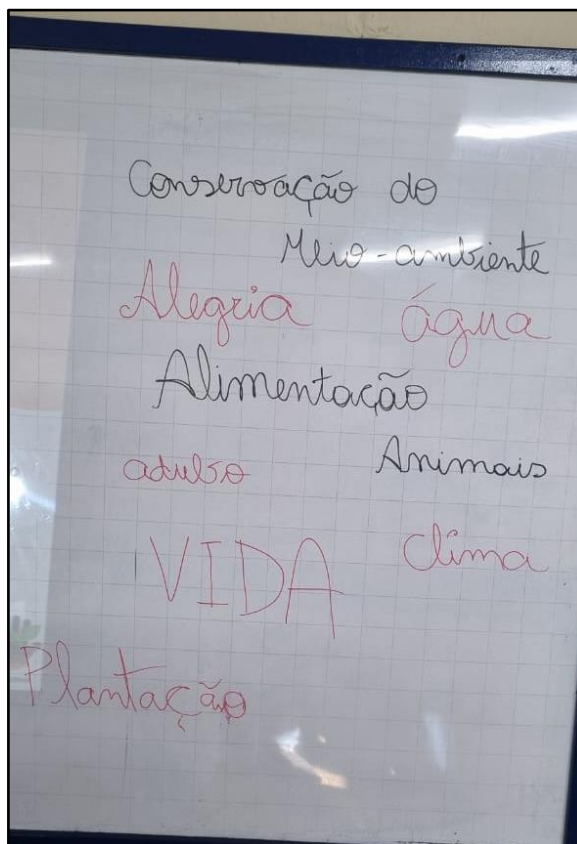 Conservação do
Meio-ambiente
Alegria água
Alimentação
adubo Animais
VIDA Clima
Plantação